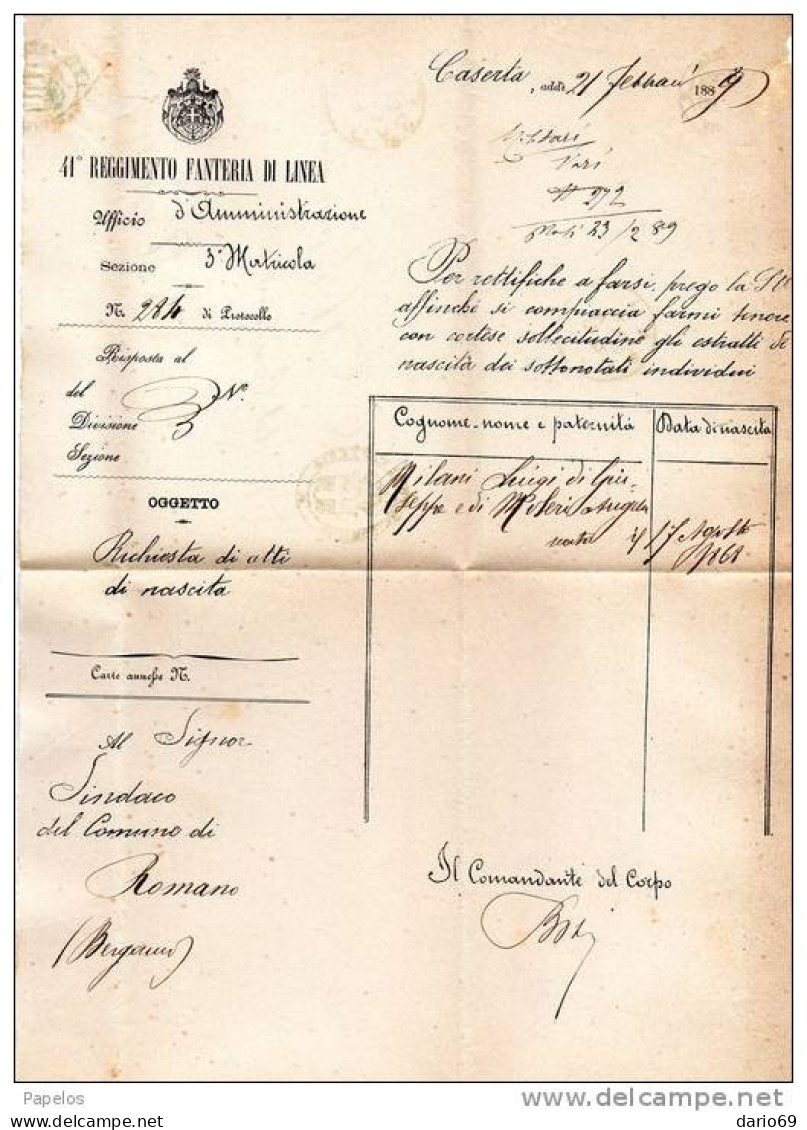 Caserta, addì 21 Febbrai 1889
41° REGGIMENTO FANTERIA DI LINEA
Ufficio d'Amministrazione
Sezione 3ª Matricola
N. 284 di Protocollo
Risposta al
del N.º
Divisione
Sezione
OGGETTO
Richiesta di atti
di nascita
Carte annesse N.
Al Signor
Sindaco
del Comune di
Romano
(Bergamo)
272
23/2 89
Per rettifiche a farsi, prego la S.V.
affinchè si compiaccia farmi tenere
con cortese sollecitudine gli estratti di
nascita dei sottonotati individui
Cognome, nome e paternità Data di nascita
Milani Luigi di Giu-
seppe e di Angela
17 Agosto
Il Comandante del Corpo
Papelos
delcampe.net
dario69